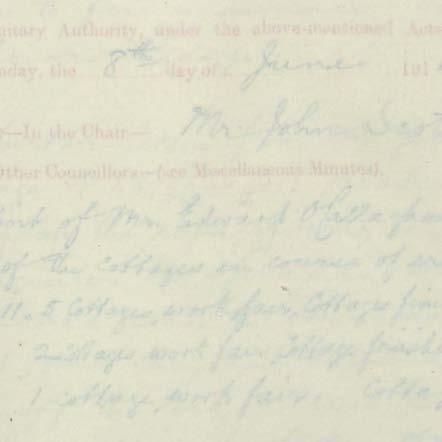 nitary Authority, under the above-mentioned Acts
day, the 8th day of June 191
—In the Chair— Mr John
Other Councillors—(see Miscellaneous Minutes).
of Mr. Edward O'Callaghan
of the Cottages on course of
11. 5 Cottages, work fair, Cottages
2 Cottages work fair Cottage
1 cottage, work fair. Cotta